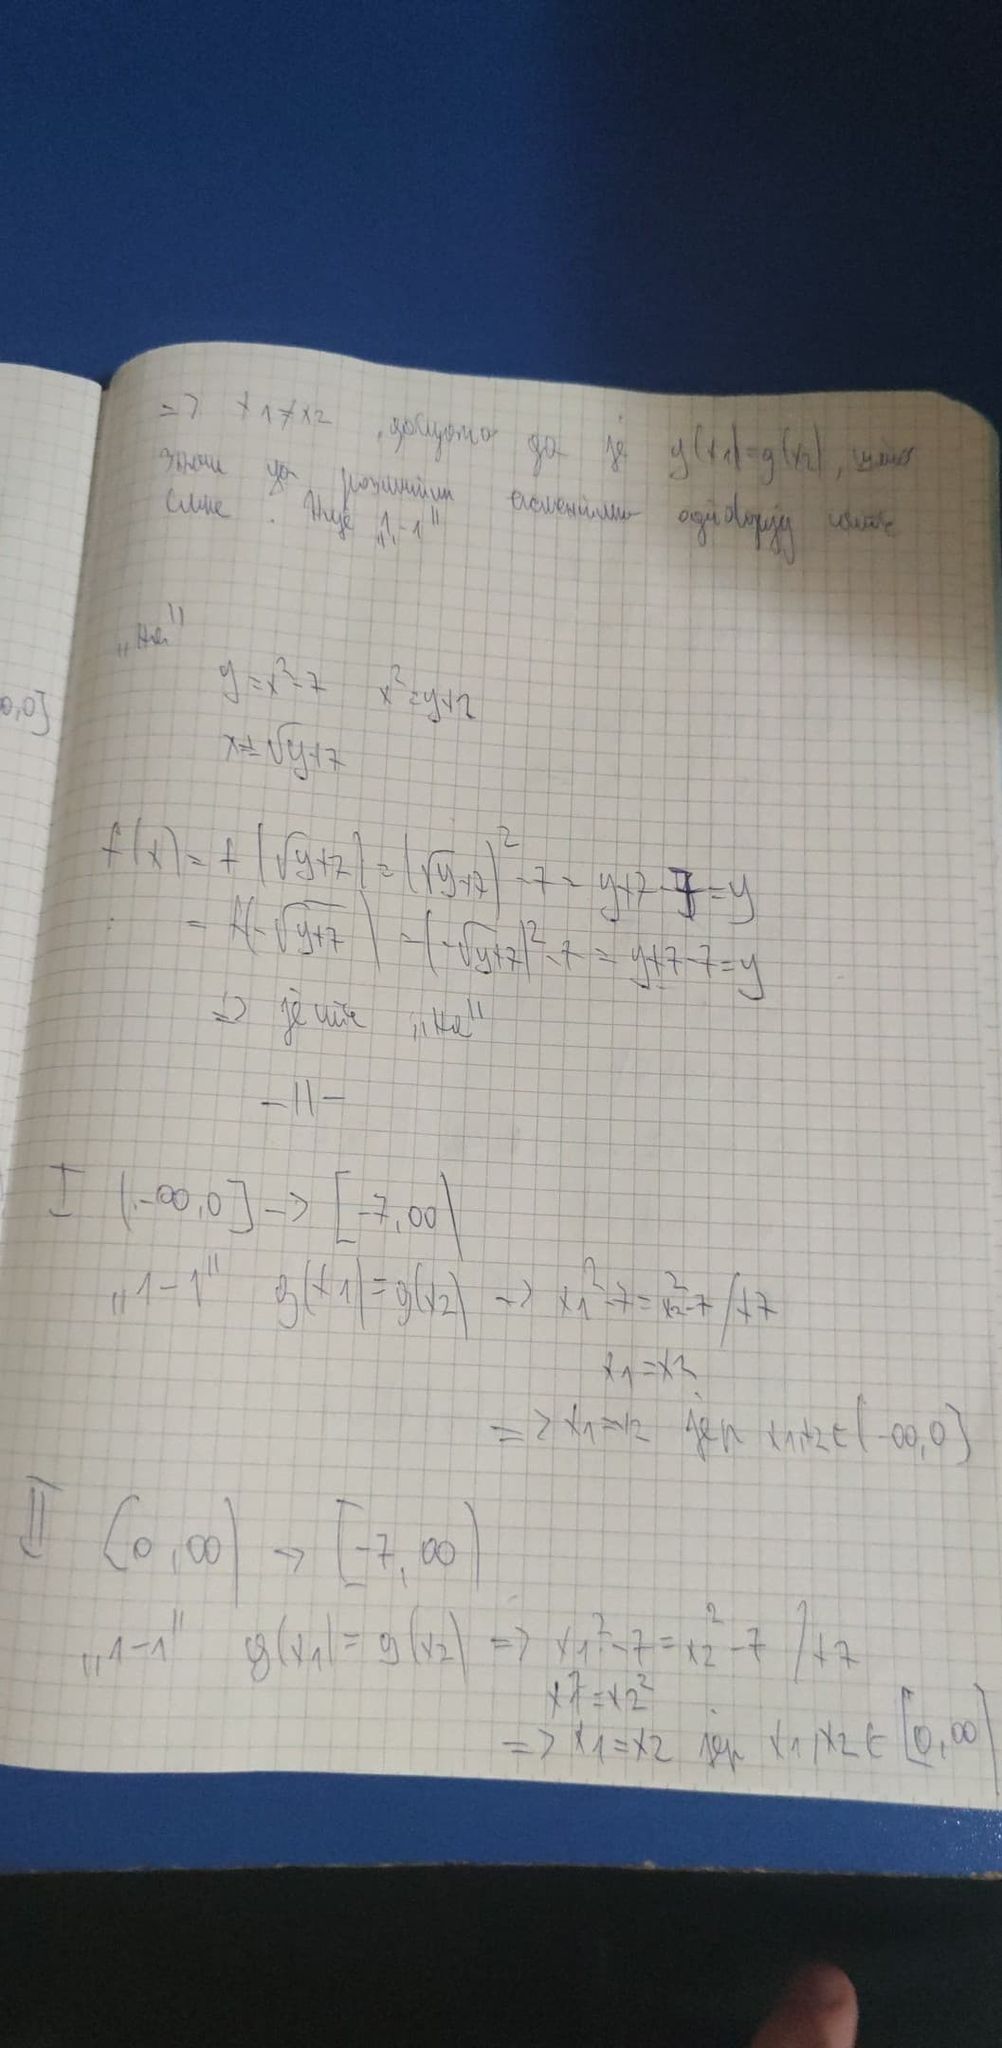 0,0]
=> x1≠x2 , да је g(x1)=g(x2),
да елементима одговарају исте
слике. Није „1-1"
„На"
y=x²-7 x²=y+7
x=±√y+7
f(x) = f(√y+7) = (√y+7)² -7 = y+7-7=y
= f(-√y+7) = (-√y+7)² -7 = y+7-7=y
=> јесте „на"
-||-
I (-∞,0] -> [-7,∞)
„1-1" g(x1)=g(x2) -> x1²-7=x2²-7 /+7
x1=x2
=> x1=x2 јер x1,x2∈(-∞,0]
II [0,∞) -> [-7,∞)
„1-1" g(x1)=g(x2) => x1²-7=x2²-7 /+7
x1²=x2²
=> x1=x2 јер x1,x2∈[0,∞)